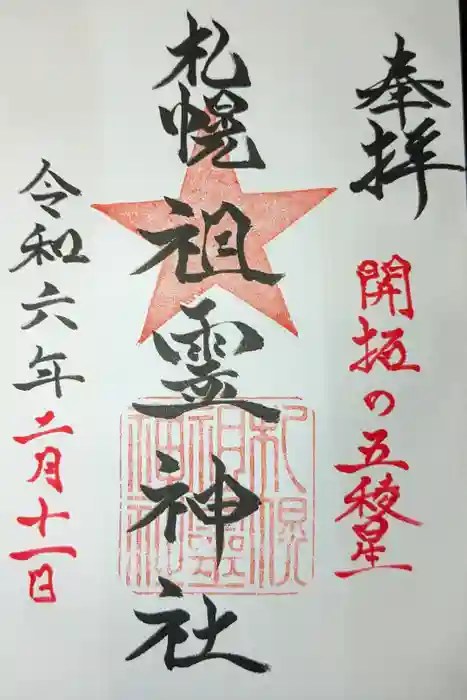 奉拝
開拓の五稜星
札幌祖霊神社
札幌祖霊神社
令和六年二月十一日